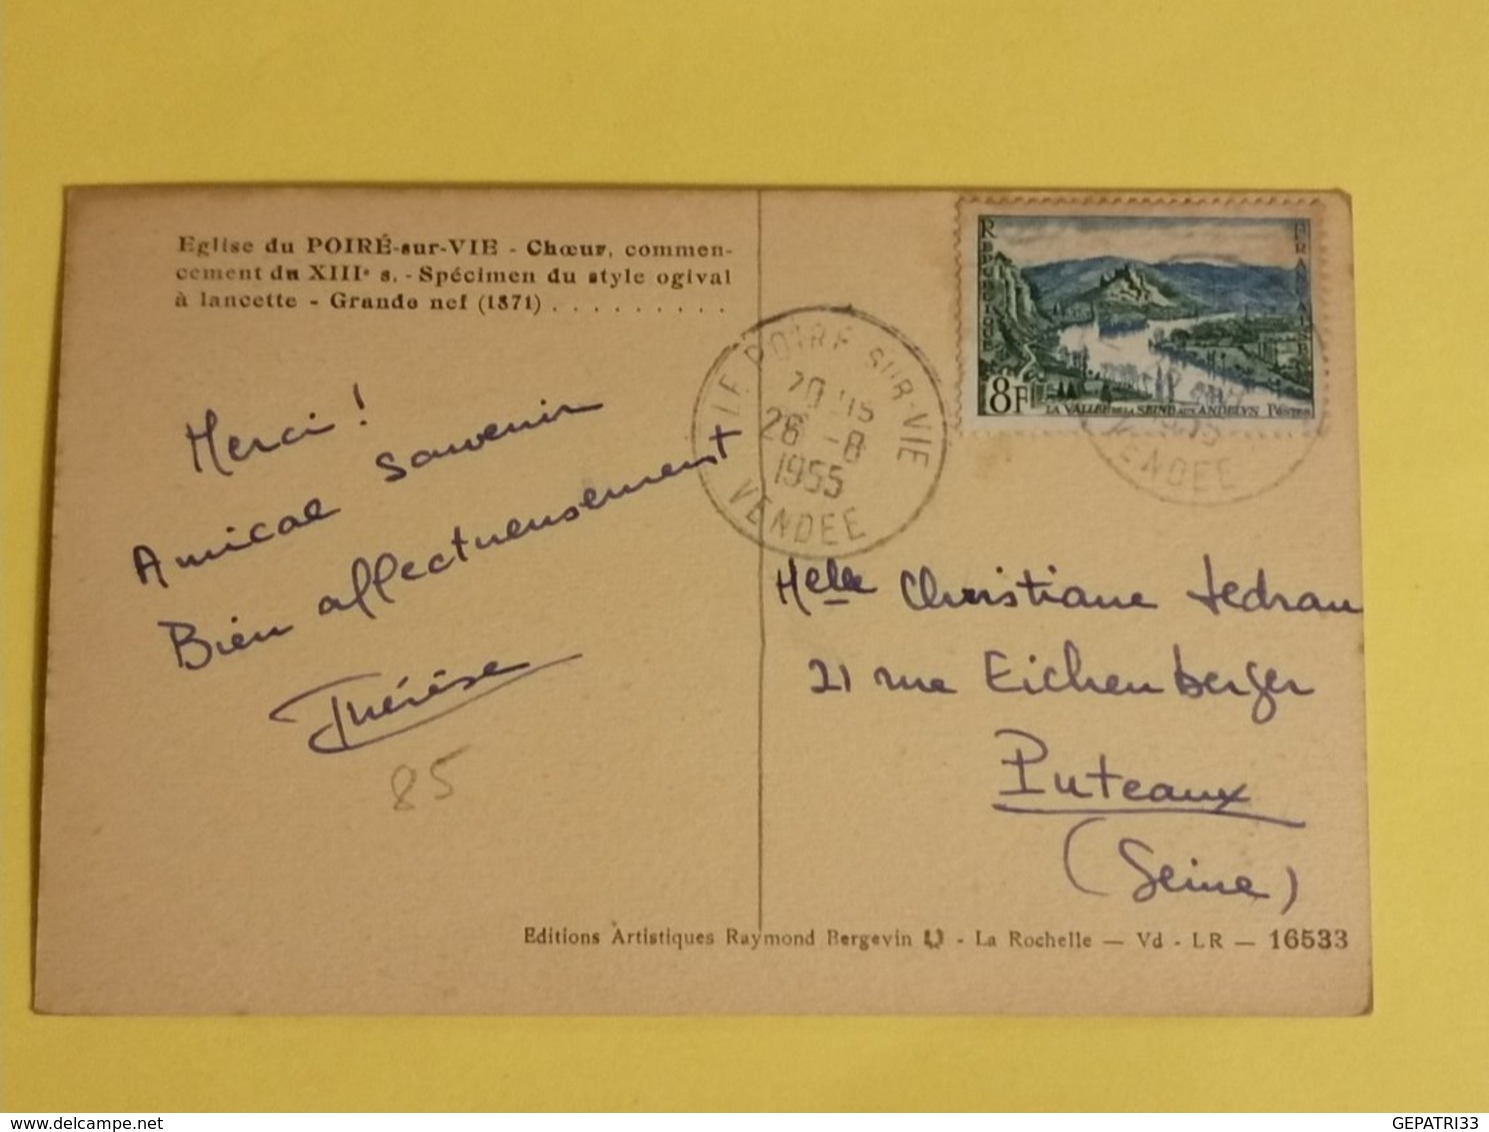 Eglise du POIRÉ-sur-VIE - Chœur, commen-
cement du XIIIe s. - Spécimen du style ogival
à lancette - Grande nef (1871) . . . . . . . . .
REPUBLIQUE
FRANCAISE
8F
LA VALLEE DE LA SEINE AUX ANDELYS POSTES
LE POIRE SUR-VIE
26 -8
1955
VENDEE
VENDEE
Merci !
Amical souvenir
Bien affectueusement
Thérèse
85
Melle Christiane
21 rue Eichenberger
Puteaux
(Seine)
Editions Artistiques Raymond Bergevin - La Rochelle — Vd - LR — 16533
delcampe.net
GEPATRI33